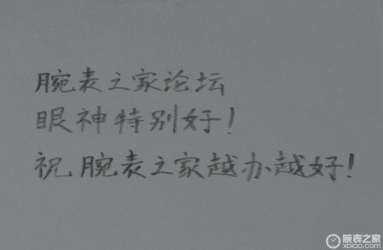 腕表之家论坛
眼神特别好！
祝腕表之家越办越好！
腕表之家
xbiao.com